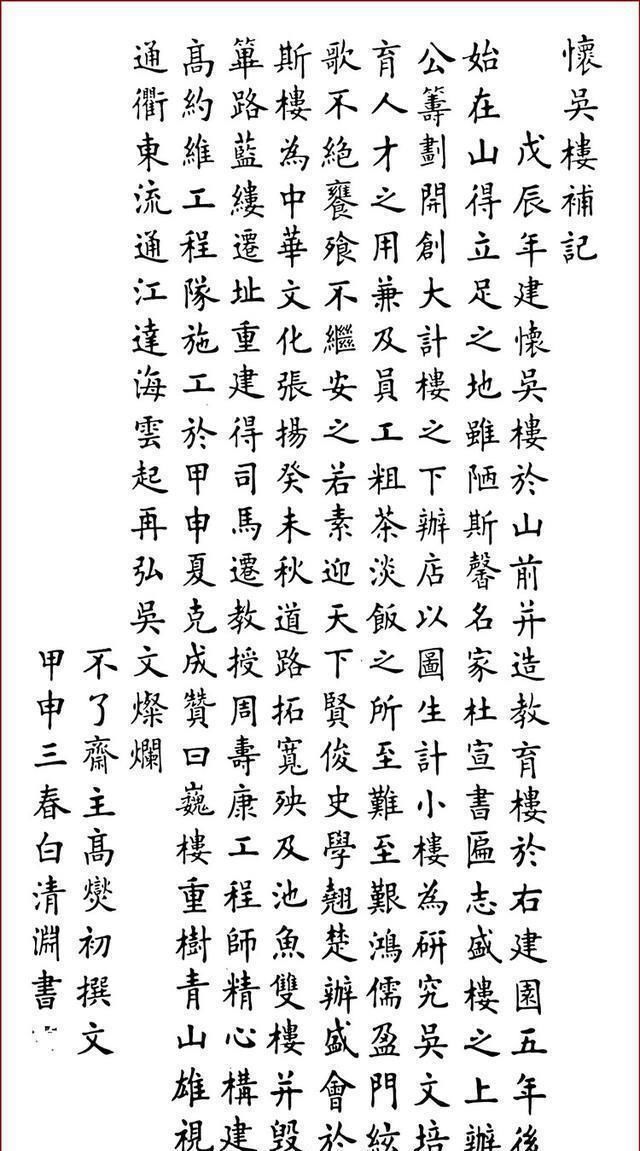 懷吳樓補記
戊辰年建懷吳樓於山前并造教育樓於右建園五年後
始在山得立足之地雖陋斯馨名家杜宣書匾志盛樓之上辦
公籌劃開創大計樓之下辦店以圖生計小樓為研究吳文培
育人才之用兼及員工粗茶淡飯之所至難至艱鴻儒盈門絃
歌不絕饔飧不繼安之若素迎天下賢俊史學翹楚辦盛會於
斯樓為中華文化張揚癸未秋道路拓寬殃及池魚雙樓并毀
篳路藍縷遷址重建得司馬遷教授周壽康工程師精心構建
髙約維工程隊施工於甲申夏克成贊曰巍樓重樹青山雄視
通衢東流通江達海雲起再弘吳文燦爛
不了齋主髙燮初撰文
甲申三春白清淵書